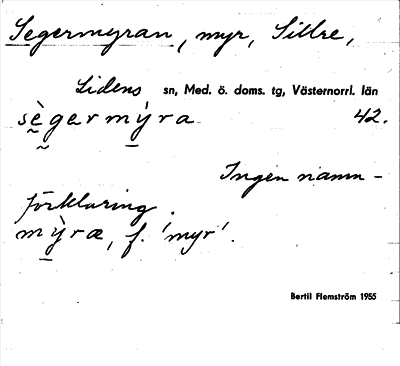 Segermyran, myr, Sillre,
Lidens sn, Med. ö. doms. tg, Västernorrl. län
sègermỳra 42.
Ingen namn-
förklaring.
mỳra, f. 'myr'.
Bertil Flemström 1955